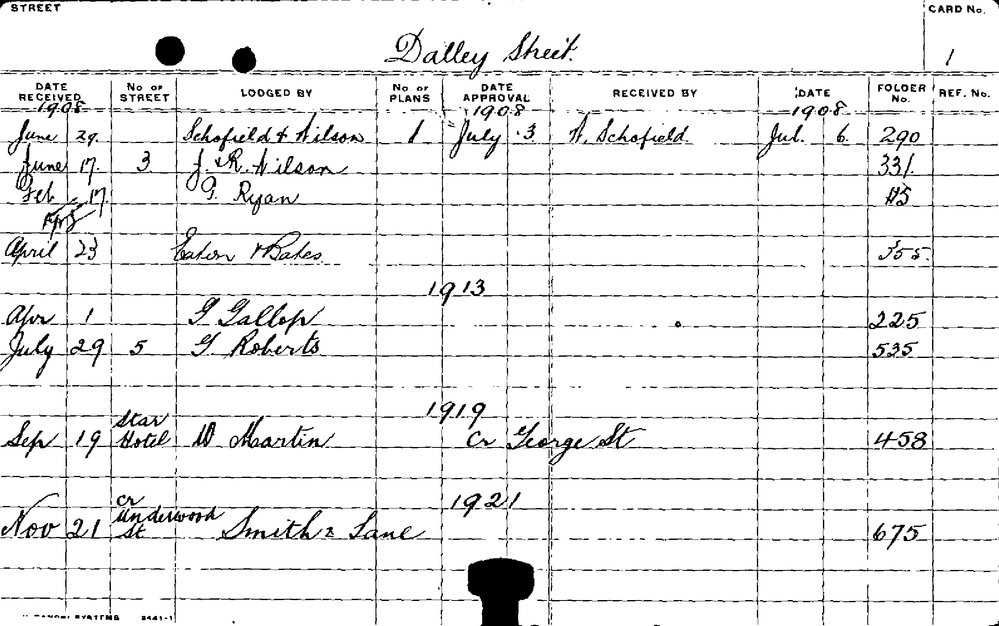 STREET CARD No.
Dalley Street. 1
DATE RECEIVED No OF STREET LODGED BY No OF PLANS DATE APPROVAL RECEIVED BY DATE FOLDER No. REF. No.
1908 1908 1908
June 29. Schofield & Wilson 1 July 3 A. Schofield Jul. 6 290
June 17. 3 J. & R. Wilson 331.
Feb 17. Ryan 115
April 23 Eaton & Bates 355.
1913
Apr 1 G Gallop 225
July 29 5 G. Roberts 535
1919
Star
Sep 19 Hotel W Martin Cr George St 458
Cr 1921
Underwood
Nov 21 St Smith & Lane 675
SYSTEMS 3441-1